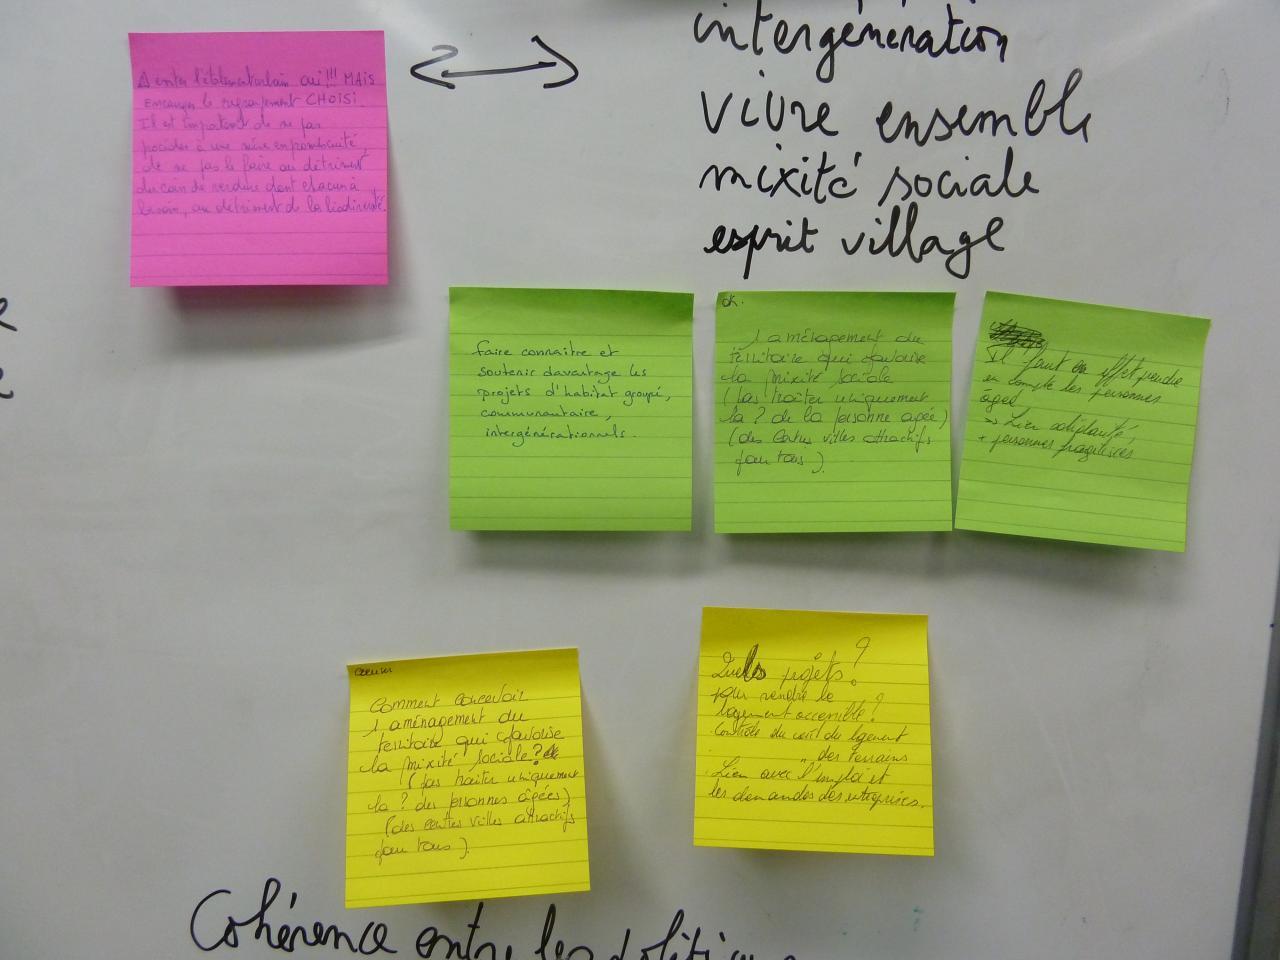 intergénération
vivre ensemble
mixité sociale
esprit village
l'étalement urbain oui!!! MAIS
encourager le regroupement CHOISI.
Il est important de ne pas
procéder à une mise en promiscuité,
de ne pas le faire au détriment
du coin de verdure dont chacun à
besoin, au détriment de la biodiversité.
faire connaître et
soutenir davantage les
projets d'habitat groupé,
communautaire,
intergénérationnels.
OK.
l'aménagement du
territoire qui favorise
la mixité sociale
(pas traiter uniquement
la ? de la personne agée)
(des centres villes attractifs
pour tous).
Il faut en effet prendre
en compte les personnes
âgées
→ Lien solidarité,
+ personnes fragilisées
Comment concevoir
l'aménagement du
territoire qui favorise
la mixité sociale?
(pas traiter uniquement
la ? des personnes âgées)
(des centres villes attractifs
pour tous).
Quels projets?
pour rendre le
logement accessible?
. Contrôle du coût du logement
. " des terrains
. Lien avec l'emploi et
les demandes des entreprises.
Cohérence entre les